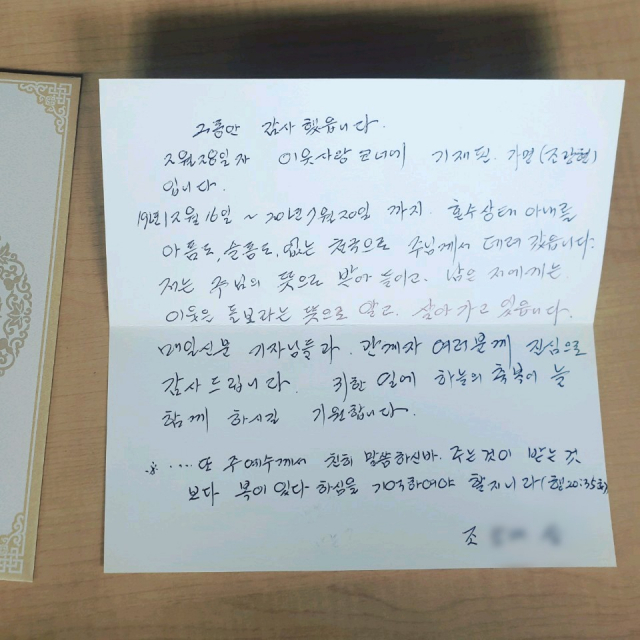 그동안 감사 했읍니다.
2월28일자 이웃사랑 코너에 기재된. 가명(조량현)
입니다.
19년12월16일 ~ 20년7월20일 까지. 혼수상태 아내를
아픔도, 슬픔도, 없는 천국으로 주님께서 데려 갔읍니다.
저는 주님의 뜻으로 받아 들이고. 남은 저에게는
이웃을 돌보라는 뜻으로 알고. 살아가고 있읍니다.
매일신문 기자님들과. 관계자 여러분께 진심으로
감사 드립니다. 귀한 일에 하늘의 축복이 늘
함께 하시길 기원합니다.
※ .... 또 주 예수께서 친히 말씀하신바. 주는것이 받는 것
보다 복이 있다 하심을 기억하여야 할지니라(행20:35)
조